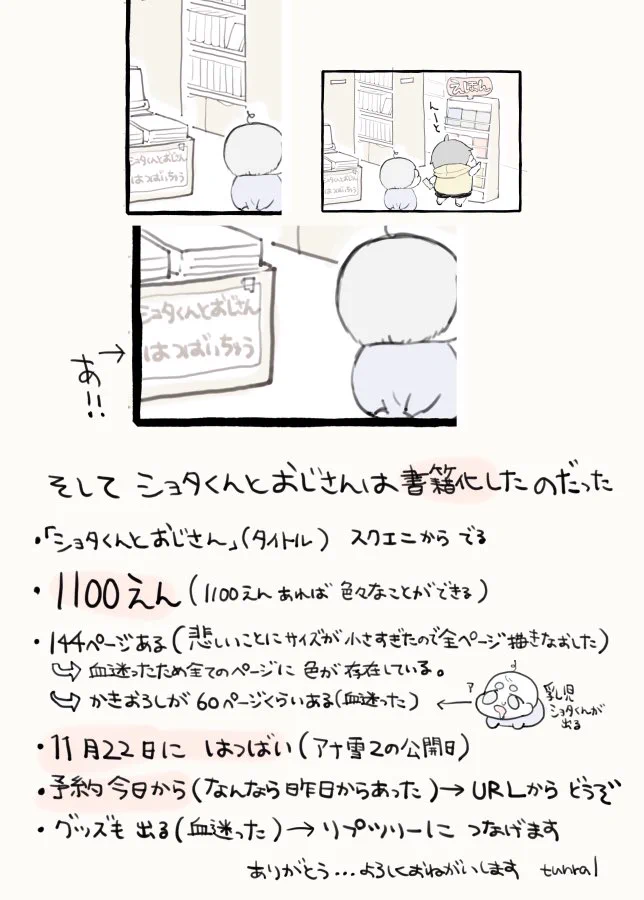 えほん
んーと
ショタくんとおじさん
はつばいちゅう
ショタくんとおじさん
はつばいちゅう
ショタくんとおじさん
はつばいちゅう
→
あ!!
そして ショタくんとおじさんは 書籍化したのだった
・「ショタくんとおじさん」(タイトル) スクエニから でる
・1100えん (1100えん あれば 色々なことができる)
・144ページある (悲しいことに サイズが 小さすぎたので 全ページ 描きなおした)
↪ 血迷ったため 全てのページに 色が 存在している。
↪ かきおろしが 60ページくらいある (血迷った) ←
?
乳児
ショタくんが
出る
・11月22日に はつばい (アナ雪2の公開日)
・予約 今日から (なんなら 昨日からあった) → URLから どうぞ
・グッズも 出る (血迷った) → リプツリーに つなげます
ありがとう…よろしくおねがいします tunral